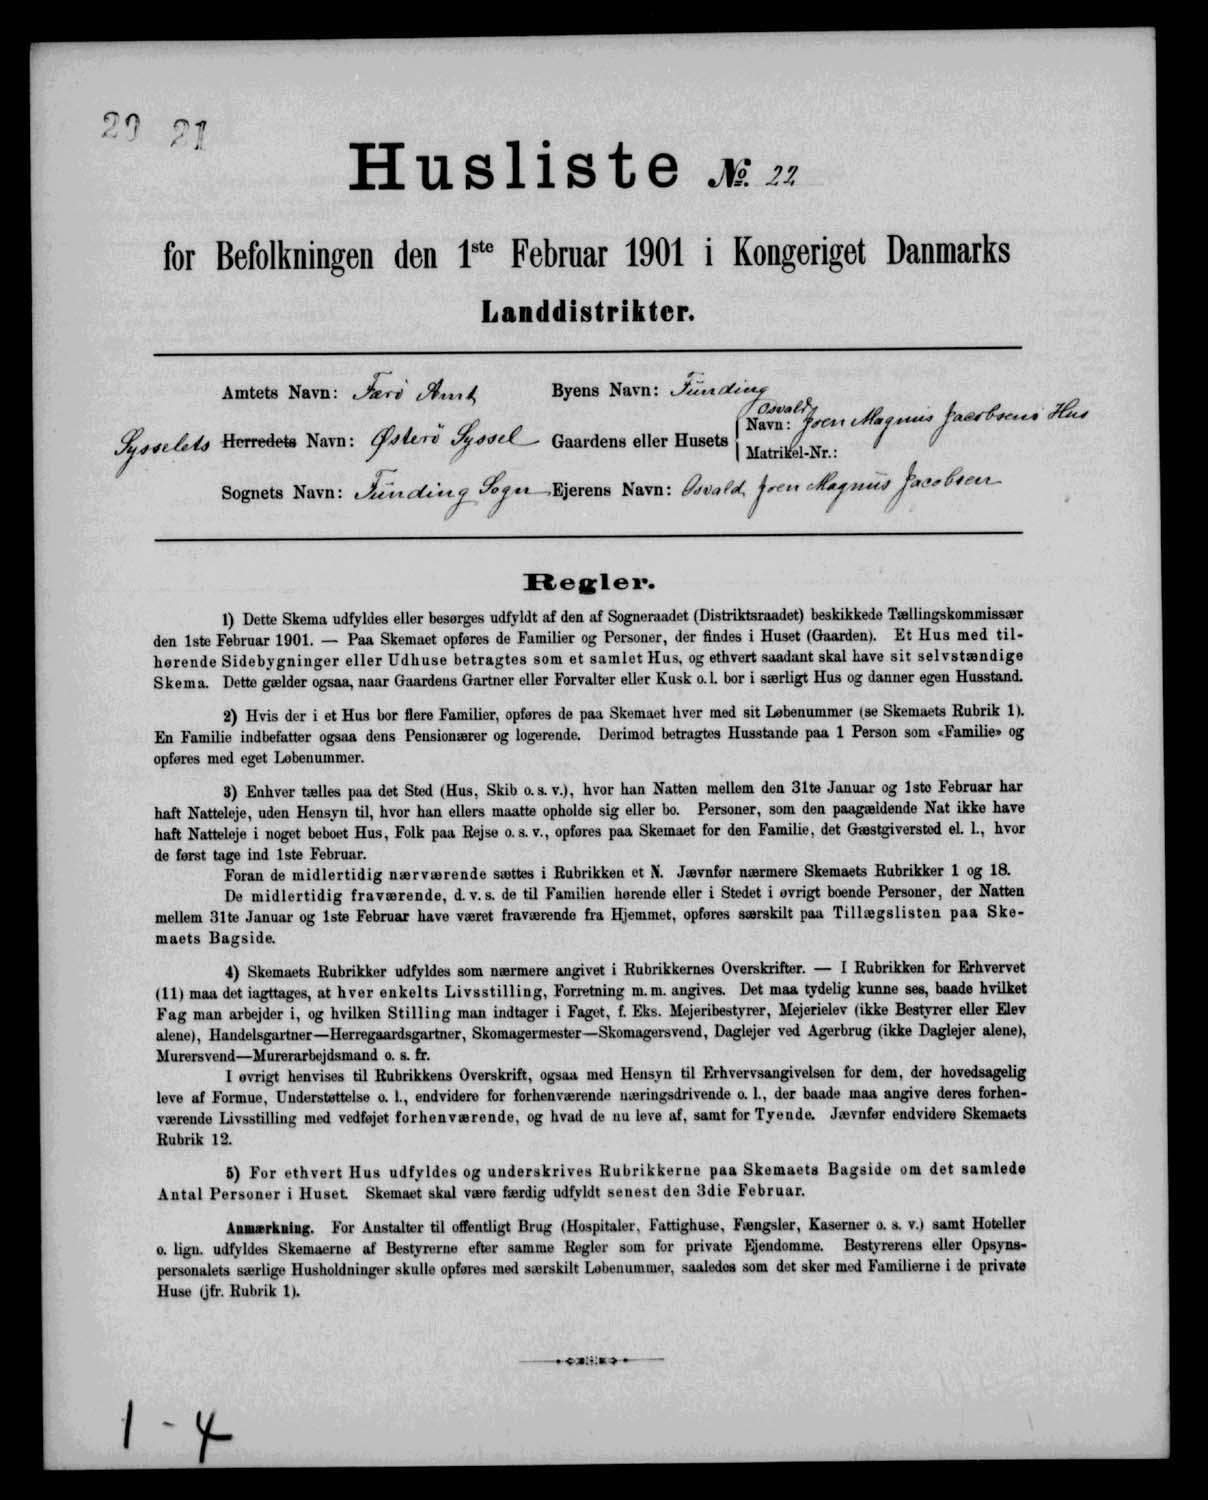 20 21
Husliste No. 22
for Befolkningen den 1ste Februar 1901 i Kongeriget Danmarks
Landdistrikter.
Amtets Navn: Færö Amt Byens Navn: Funding
Sysselets Herredets Navn: Østerö Syssel Gaardens eller Husets Navn: Osvald Joen Magnus Jacobsens Hus
Matrikel-Nr.:
Sognets Navn: Funding Sogn Ejerens Navn: Osvald Joen Magnus Jacobsen
Regler.
1) Dette Skema udfyldes eller besørges udfyldt af den af Sogneraadet (Distriktsraadet) beskikkede Tællingskommissær
den 1ste Februar 1901. — Paa Skemaet opføres de Familier og Personer, der findes i Huset (Gaarden). Et Hus med til-
hørende Sidebygninger eller Udhuse betragtes som et samlet Hus, og ethvert saadant skal have sit selvstændige
Skema. Dette gælder ogsaa, naar Gaardens Gartner eller Forvalter eller Kusk o. l. bor i særligt Hus og danner egen Husstand.
2) Hvis der i et Hus bor flere Familier, opføres de paa Skemaet hver med sit Løbenummer (se Skemaets Rubrik 1).
En Familie indbefatter ogsaa dens Pensionærer og logerende. Derimod betragtes Husstande paa 1 Person som «Familie» og
opføres med eget Løbenummer.
3) Enhver tælles paa det Sted (Hus, Skib o. s. v.), hvor han Natten mellem den 31te Januar og 1ste Februar har
haft Natteleje, uden Hensyn til, hvor han ellers maatte opholde sig eller bo. Personer, som den paagældende Nat ikke have
haft Natteleje i noget beboet Hus, Folk paa Rejse o. s. v., opføres paa Skemaet for den Familie, det Gæstgiversted el. l., hvor
de først tage ind 1ste Februar.
Foran de midlertidig nærværende sættes i Rubrikken et N. Jævnfør nærmere Skemaets Rubrikker 1 og 18.
De midlertidig fraværende, d. v. s. de til Familien hørende eller i Stedet i øvrigt boende Personer, der Natten
mellem 31te Januar og 1ste Februar have været fraværende fra Hjemmet, opføres særskilt paa Tillægslisten paa Ske-
maets Bagside.
4) Skemaets Rubrikker udfyldes som nærmere angivet i Rubrikkernes Overskrifter. — I Rubrikken for Erhvervet
(11) maa det iagttages, at hver enkelts Livsstilling, Forretning m. m. angives. Det maa tydelig kunne ses, baade hvilket
Fag man arbejder i, og hvilken Stilling man indtager i Faget, f. Eks. Mejeribestyrer, Mejerielev (ikke Bestyrer eller Elev
alene), Handelsgartner—Herregaardsgartner, Skomagermester—Skomagersvend, Daglejer ved Agerbrug (ikke Daglejer alene),
Murersvend—Murerarbejdsmand o. s. fr.
I øvrigt henvises til Rubrikkens Overskrift, ogsaa med Hensyn til Erhvervsangivelsen for dem, der hovedsagelig
leve af Formue, Understøttelse o. l., endvidere for forhenværende næringsdrivende o. l., der baade maa angive deres forhen-
værende Livsstilling med vedføjet forhenværende, og hvad de nu leve af, samt for Tyende. Jævnfør endvidere Skemaets
Rubrik 12.
5) For ethvert Hus udfyldes og underskrives Rubrikkerne paa Skemaets Bagside om det samlede
Antal Personer i Huset. Skemaet skal være færdig udfyldt senest den 3die Februar.
Anmærkning. For Anstalter til offentligt Brug (Hospitaler, Fattighuse, Fængsler, Kaserner o. s. v.) samt Hoteller
o. lign. udfyldes Skemaerne af Bestyrerne efter samme Regler som for private Ejendomme. Bestyrerens eller Opsyns-
personalets særlige Husholdninger skulle opføres med særskilt Løbenummer, saaledes som det sker med Familierne i de private
Huse (jfr. Rubrik 1).
1 - 4